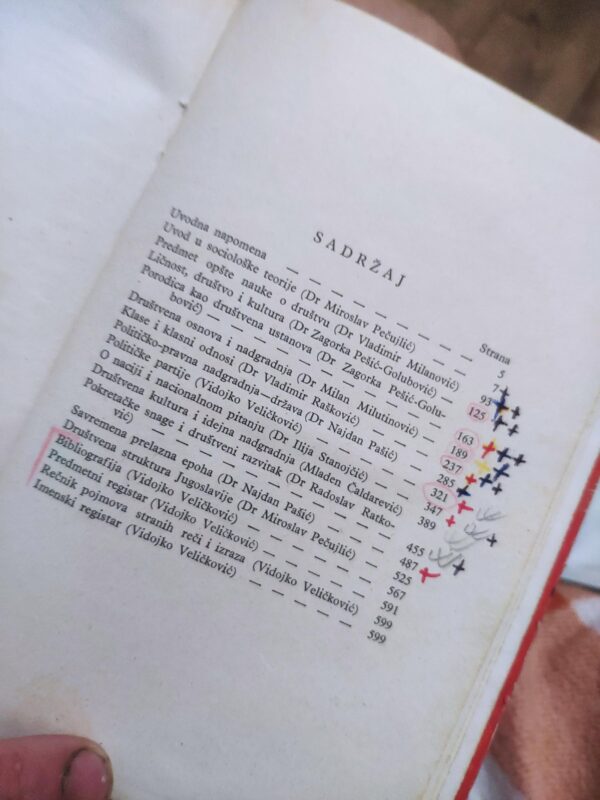 SADRŽAJ
Strana
Uvodna napomena — — — — — — — — 5
Uvod u sociološke teorije (Dr Miroslav Pečujlić) — — — 7
Predmet opšte nauke o društvu (Dr Vladimir Milanović) — 93
Ličnost, društvo i kultura (Dr Zagorka Pešić-Golubović) — 125
Porodica kao društvena ustanova (Dr Zagorka Pešić-Golu-
bović) — — — — — — — — — — 163
Društvena osnova i nadgradnja (Dr Milan Milutinović) — 189
Klase i klasni odnosi (Dr Vladimir Rašković) — — — 237
Političko-pravna nadgradnja—država (Dr Najdan Pašić) — 285
Političke partije (Vidojko Veličković) — — — — — 321
O naciji i nacionalnom pitanju (Dr Ilija Stanojčić) — — 347
Društvena kultura i idejna nadgradnja (Mladen Čaldarević) 389
Pokretačke snage i društveni razvitak (Dr Radoslav Ratko-
vić) — — — — — — — — — — 455
Savremena prelazna epoha (Dr Najdan Pašić) — — — 487
Društvena struktura Jugoslavije (Dr Miroslav Pečujlić) — 525
Bibliografija (Vidojko Veličković) — — — — — — 567
Predmetni registar (Vidojko Veličković) — — — — 591
Rečnik pojmova stranih reči i izraza (Vidojko Veličković) 599
Imenski registar (Vidojko Veličković) — — — — — 599